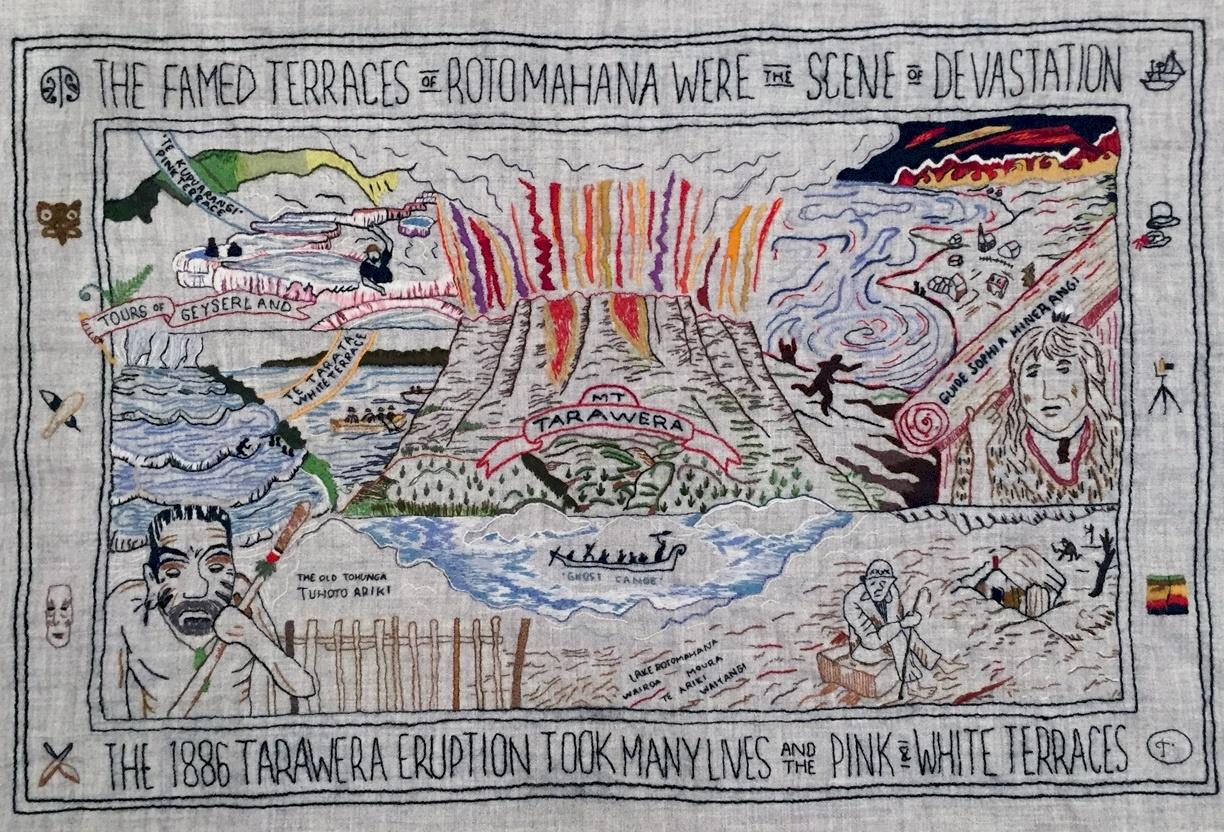 THE FAMED TERRACES OF ROTOMAHANA WERE THE SCENE OF DEVASTATION
'TE KUPUARANGI'
PINK TERRACE
TOURS OF GEYSERLAND
TE TARATA
WHITE TERRACE
MT
TARAWERA
GUIDE SOPHIA HINERANGI
THE OLD TOHUNGA
TUHOTO ARIKI
'GHOST CANOE'
LAKE ROTOMAHANA
WAIROA MOURA
TE ARIKI WAITANGI
THE 1886 TARAWERA ERUPTION TOOK MANY LIVES AND THE PINK & WHITE TERRACES